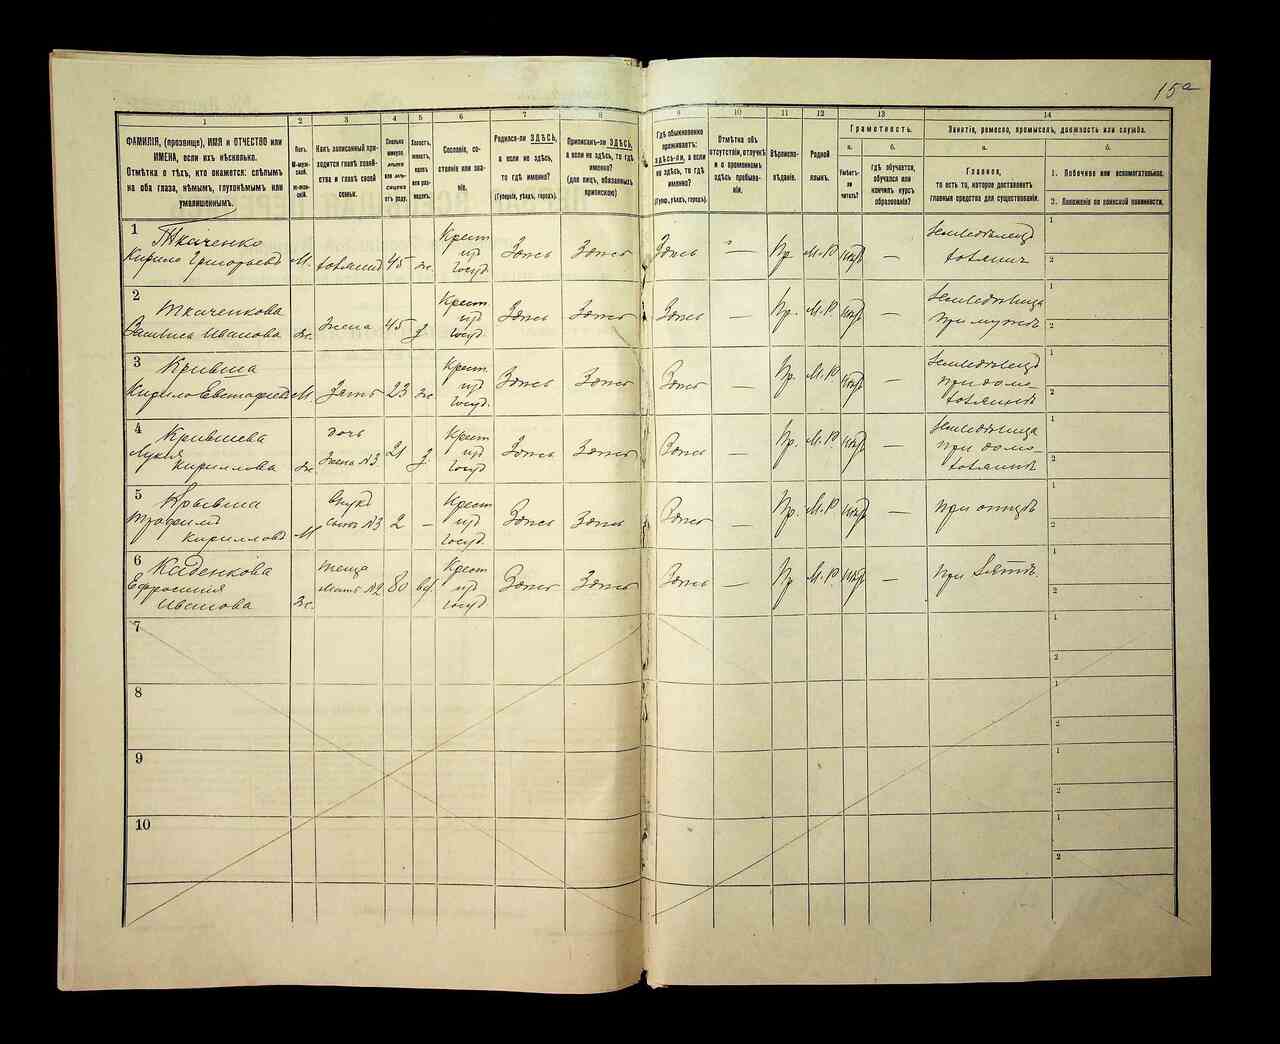 15а
1
2
3
4
5
6
7
8
9
10
11
12
13
14
ФАМИЛІЯ, (прозвище), ИМЯ и ОТЧЕСТВО или
ИМЕНА, если ихъ нѣсколько.
Отмѣтка о тѣхъ, кто окажется: слѣпымъ
на оба глаза, нѣмымъ, глухонѣмымъ или
умалишеннымъ.
Полъ.
М-муж-
ской.
Ж-жен-
скій.
Какъ записанный при-
ходится главѣ хозяй-
ства и главѣ своей
семьи.
Сколько
минуло
лѣтъ
или мѣ-
сяцевъ
отъ роду.
Холостъ,
женатъ,
вдовъ
или раз-
веденъ.
Сословіе, со-
стояніе или зва-
ніе.
Родился-ли ЗДѢСЬ,
а если не здѣсь,
то гдѣ именно?
(Губернія, уѣздъ, городъ).
Приписанъ-ли ЗДѢСЬ,
а если не здѣсь, то гдѣ
именно?
(для лицъ, обязанныхъ
припискою)
Гдѣ обыкновенно
проживаетъ:
здѣсь-ли, а если
не здѣсь, то гдѣ
именно?
(Губер., уѣздъ, городъ).
Отмѣтка объ
отсутствіи, отлучкѣ
и о временномъ
здѣсь пребыва-
ніи.
Вѣроиспо-
вѣданіе.
Родной
языкъ.
Грамотность.
а.
б.
Умѣетъ-
ли
читать?
гдѣ обучается,
обучался или
кончилъ курсъ
образованія?
Занятіе, ремесло, промыселъ, должность или служба.
а.
б.
Главное,
то есть то, которое доставляетъ
главныя средства для существованія.
1. Побочное или вспомогательное.
2. Положеніе по воинской повинности.
1 Ткаченко
Кирило Григорьевъ М. хозяинъ 45 ж. Крест из госуд. Здѣсь Здѣсь Здѣсь — Пр. М.Р. — Земледѣлецъ хозяинъ 1 2
2 Ткаченкова
Василиса Иванова Ж. Жена 45 з. Крест из госуд. Здѣсь Здѣсь Здѣсь — Пр. М.Р. — Земледѣлица при мужѣ 1 2
3 Кривша
Кирило Евстафіевъ М. Зять 23 ж. Крест из госуд. Здѣсь Здѣсь Здѣсь — Пр. М.Р. — Земледѣлецъ при домохозяинѣ 1 2
4 Крившева
Лукія Кириллова Ж. дочь Жена №3 21 з. Крест из госуд. Здѣсь Здѣсь Здѣсь — Пр. М.Р. — Земледѣлица при домохозяинѣ 1 2
5 Кривша
Трофимъ Кирилловъ М внукъ сынъ №3 2 — Крест из госуд. Здѣсь Здѣсь Здѣсь — Пр. М.Р. — при отцѣ 1 2
6 Каденкова
Ефросинія Иванова Ж. теща мать №2 80 вд. Крест из госуд. Здѣсь Здѣсь Здѣсь — Пр М.Р. — при зятѣ. 1 2
7 1 2
8 1 2
9 1 2
10 1 2